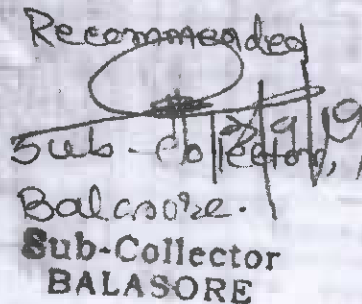 Recommended
Sub-Collector,
Balasore.
Sub-Collector
BALASORE